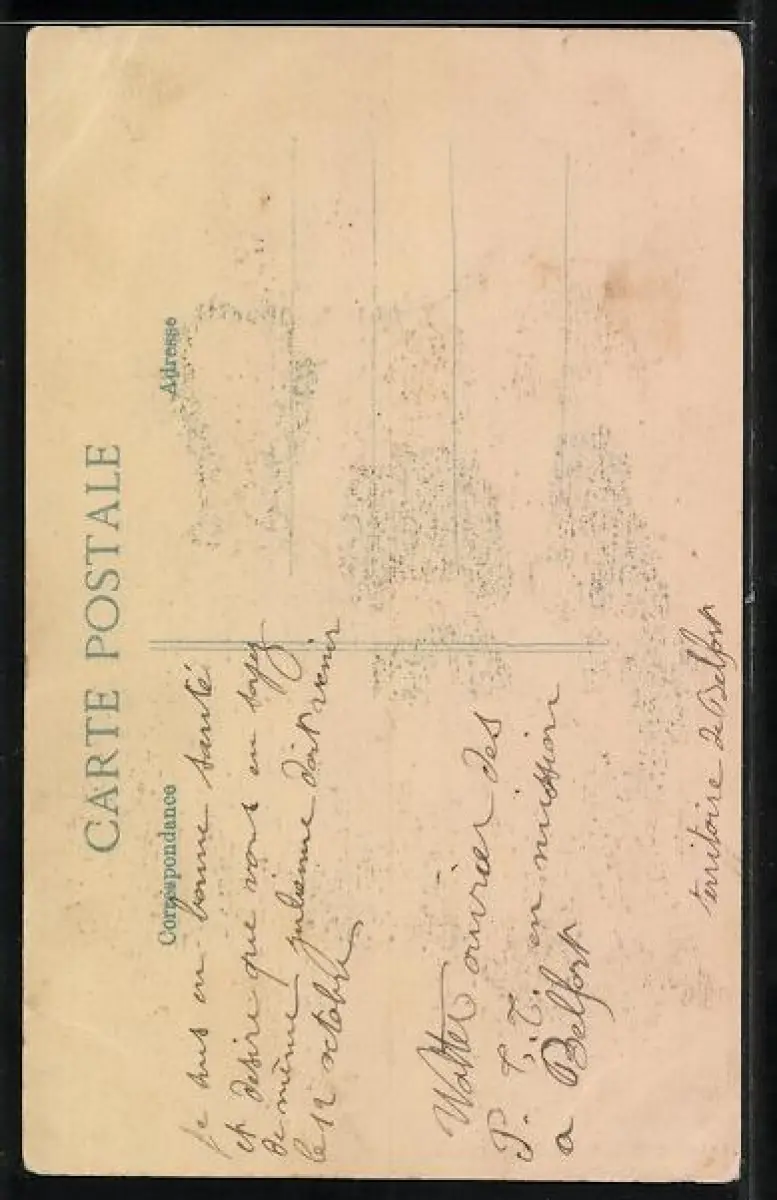 CARTE POSTALE
Correspondance
Adresse
je suis en bonne santé
et desire que vous en soyez
de même julienne doit venir
le 12 octobre
Walter ouvrier des
P. T. T. en mission
a Belfort
territoire de Belfort